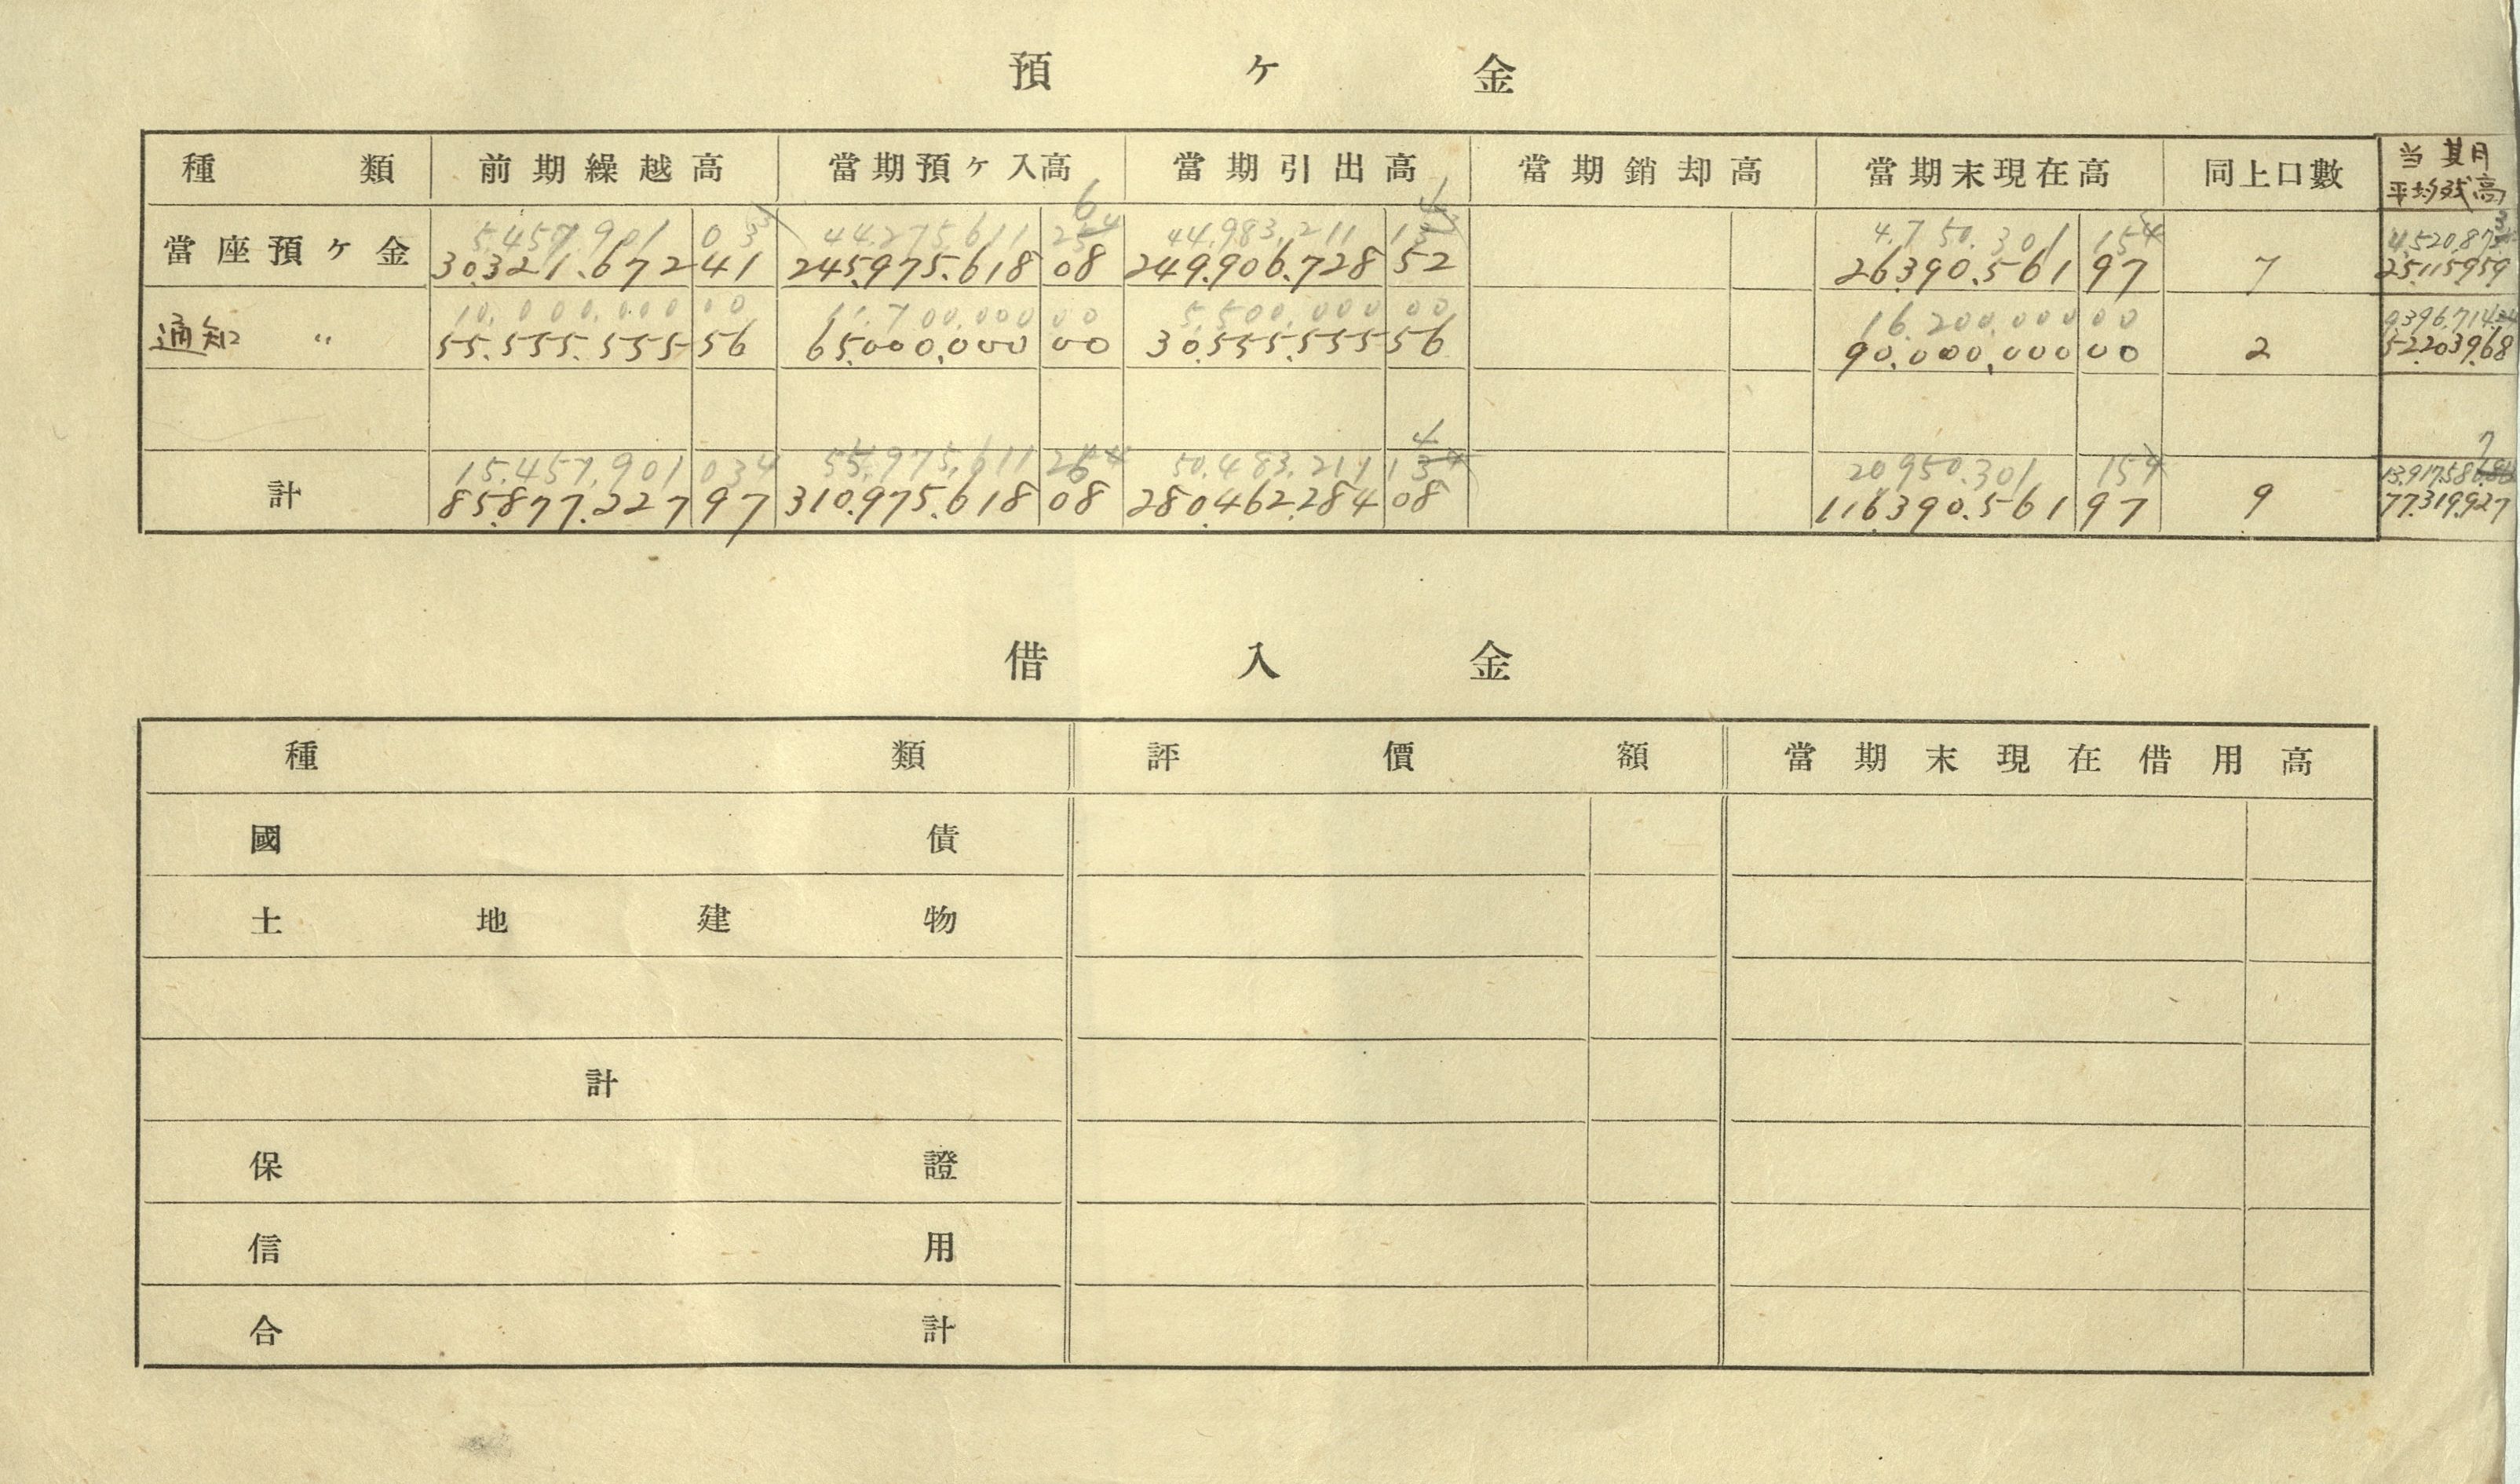 預ヶ金
種類 前期繰越高 當期預ヶ入高 當期引出高 當期銷却高 當期末現在高 同上口數 当期月
平均残高
5.457.901 03 44.275.611 44.983.211 4.750.301 15
當座預ヶ金 30.321.672 41 245.975.618 08 249.906.728 52 26.390.561 97 7 25.115.959
10.000.000 00 11.700.000 00 5.500.000 00 16.200.000 00 9.396.714
通知 〃 55.555.555 56 65.000.000 00 30.555.555 56 90.000.000 00 2 52.203.968
15.457.901 034 55.975.611 50.483.211 20.950.301 15
計 85.877.227 97 310.975.618 08 280.462.284 08 116.390.561 97 9 77.319.927
借入金
種類 評價額 當期末現在借用高
國債
土地建物
計
保證
信用
合計